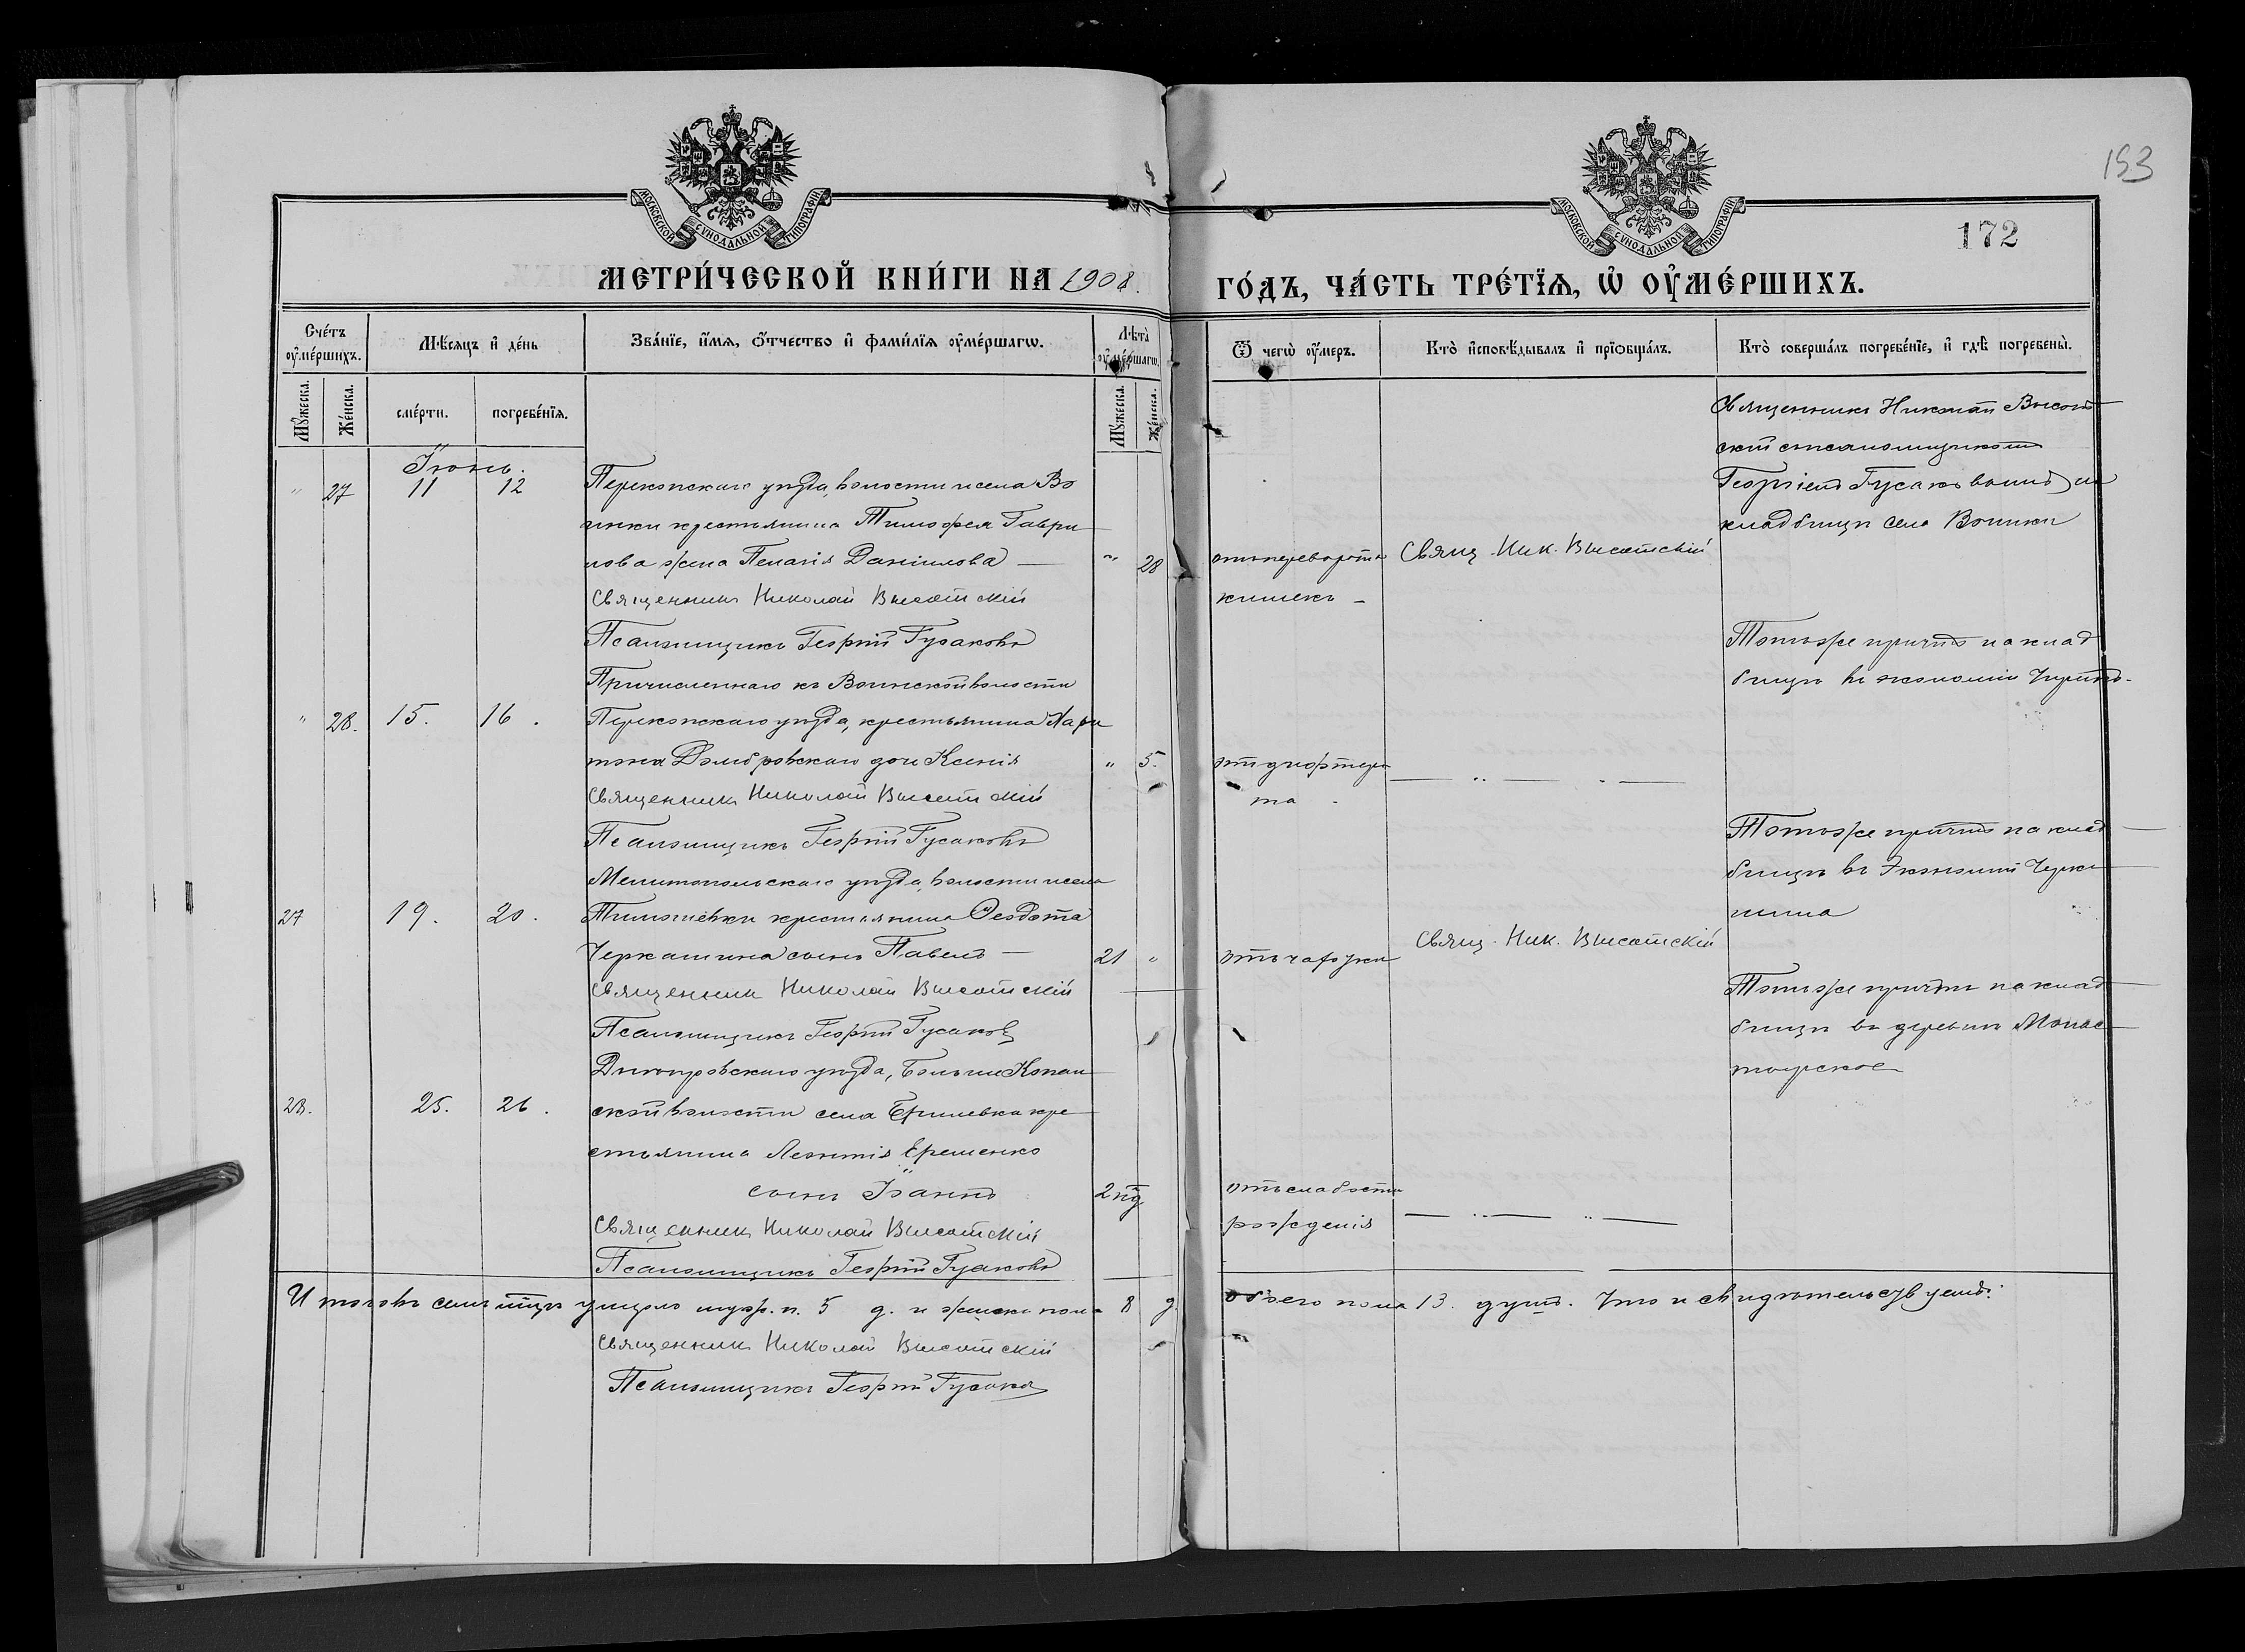 153
МОСКОВСКОЙ СѴНОДАЛЬНОЙ ТИПОГРАФІИ
МОСКОВСКОЙ СѴНОДАЛЬНОЙ ТИПОГРАФІИ
172
МЕТРИ́ЧЕСКОЙ КНИ́ГИ НА 1908.
ГО́ДЪ, ЧА́СТЬ ТРЕ́ТЇѦ, Ѡ҆ ОУ҆МЕ́РШИХЪ.
Сче́тъ оу҆ме́ршихъ.
Мѣ́сяцъ и҆ де́нь
Зва́нїе, и҆́мѧ, ѻ҆́тчество и҆ фами́лїѧ оу҆ме́ршагѡ.
Лѣ́та̀ оу҆ме́ршагѡ.
Ѿ чегѡ̀ оу҆́меръ.
Кто̀ и҆сповѣ́дывалъ и҆ прїѡбща́лъ.
Кто̀ соверша́лъ погребе́нїе, и҆ гдѣ̀ погребены̀.
Мꙋ́жеска.
Же́нска.
сме́рти.
погребе́нїѧ.
Мꙋ́жеска.
Же́нска.
Іюнь.
" 27 11 12
Перекопскаго уѣзда, волости и села Во
инки крестьянина Тимофея Гаври
лова жена Пелагія Даніилова — " 28
Священникъ Николай Высотскій
Псаломщикъ Георгій Гусаковъ
отъ переворота
кишекъ —
Свящ. Ник. Высотскій
Священникъ Николай Высот
скій съ псаломщикомъ
Георгіемъ Гусаковымъ на
кладбищѣ села Воинки
Причисленнаго къ Воинской волости
" 28. 15. 16.
Перекопскаго уѣзда, крестьянина Хари
тона Домбровскаго дочь Ксенія " 5.
Священникъ Николай Высотскій
Псаломщикъ Георгій Гусаковъ
отъ дифтери
та
— " — " —
Тотъ же причтъ на клад
бищѣ въ экономіи
Мелитопольскаго уѣзда, волости и села
27 19. 20.
Тимошевки крестьянина Ѳеодота
Черкашина сынъ Павелъ — 21 "
Священникъ Николай Высотскій
Псаломщикъ Георгій Гусаковъ
отъ чахотки
Свящ. Ник. Высотскій
Тотъ же причтъ на клад
бищѣ въ Экономіи Черка
шина
Днѣпровскаго уѣзда, Больше Копан
28. 25. 26.
ской волости села Брилевка кре
стьянина Леонтія Еременко
сынъ Іоаннъ 2 нд
Священникъ Николай Высотскій
Псаломщикъ Георгій Гусаковъ
отъ слабости
рожденія
— " — " —
Тотъ же причтъ на клад
бищѣ въ деревнѣ Монас
тырское
Итого въ семъ мцѣ умерло муж. п. 5 д. и женска пола 8 д.
обоего пола 13. душъ. Что и свидѣтельствуемъ:
Священникъ Николай Высотскій
Псаломщикъ Георгій Гусаковъ